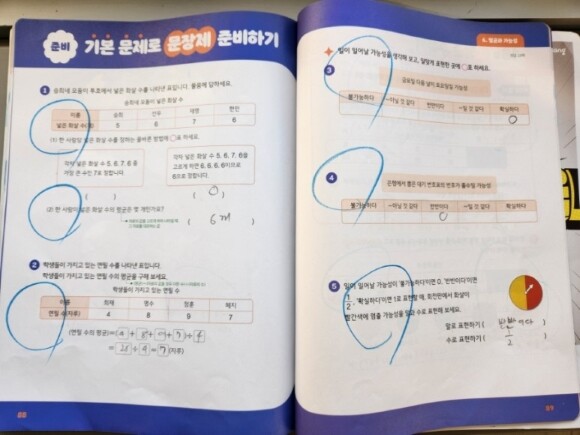 준비 기본 문제로 문장제 준비하기
1 승희네 모둠이 투호에서 넣은 화살 수를 나타낸 표입니다. 물음에 답하세요.
승희네 모둠이 넣은 화살 수
이름 승희 민우 재영 현진
넣은 화살 수(개) 5 6 7 6
(1) 한 사람당 넣은 화살 수를 정하는 올바른 방법에 ○표 하세요.
각자 넣은 화살 수 5, 6, 7, 6 중 각자 넣은 화살 수 5, 6, 7, 6을
가장 큰 수인 7로 정합니다. 고르게 하면 6, 6, 6, 6이므로
6으로 정합니다.
( ) ( ○ )
(2) 한 사람이 넣은 화살 수의 평균은 몇 개인가요?
( 6개 )
2 학생들이 가지고 있는 연필 수를 나타낸 표입니다.
학생들이 가지고 있는 연필 수의 평균을 구해 보세요.
학생들이 가지고 있는 연필 수
이름 희재 명수 정훈 예지
연필 수(자루) 4 8 9 7
(연필 수의 평균)=(4+8+9+7)÷4
=28÷4=7(자루)
88
6. 평균과 가능성
일이 일어날 가능성을 생각해 보고, 알맞게 표현한 곳에 ○표 하세요.
3
금요일 다음 날이 토요일일 가능성
불가능하다 ~아닐 것 같다 반반이다 ~일 것 같다 확실하다
○
4
은행에서 뽑은 대기 번호표의 번호가 홀수일 가능성
불가능하다 ~아닐 것 같다 반반이다 ~일 것 같다 확실하다
○
5 일이 일어날 가능성이 '불가능하다'이면 0, '반반이다'이면
1/2, '확실하다'이면 1로 표현할 때, 회전판에서 화살이
빨간색에 멈출 가능성을 말과 수로 표현해 보세요.
말로 표현하기 ( 반반이다 )
수로 표현하기 ( 1/2 )
89